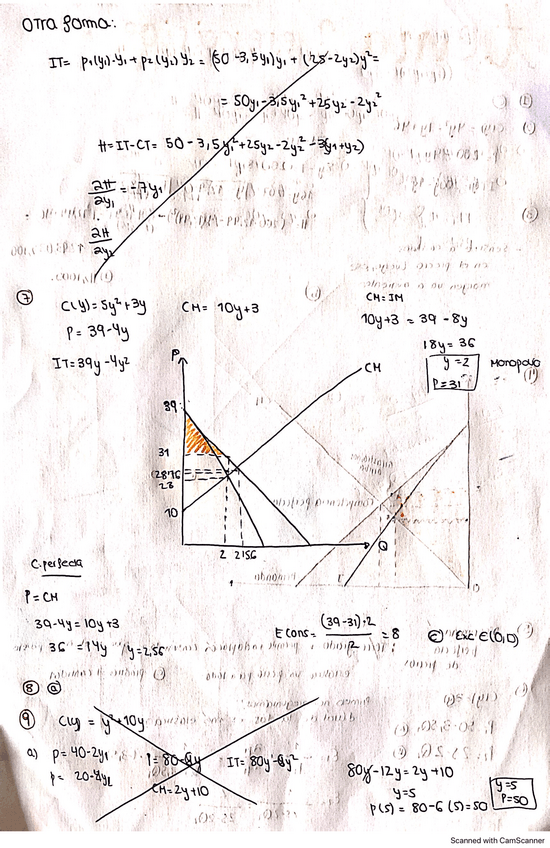 Otra forma:
IT= P1(y1)·y1 + P2(y2) y2 = (50 -3,5y1)y1 + (25-2y2)y2=
= 50y1 -3,5y1² +25y2 -2y2²
H=IT-CT= 50 -3,5y1² +25y2 -2y2² -3(y1+y2)
∂H/∂y1 = -7y1
∂H/∂y2
⑦ C(y)= 5y²+3y CM= 10y+3 CM=IM
P= 39-4y 10y+3 = 39 -8y
IT=39y -4y² 18y = 36
y=2 MONOPOLIO
P=31
P
CM
39
31
28,76
23
10
2 2,56 Q
C. perfecta
P=CM
39-4y=10y+3
36 =14y y=2,56
E cons= (39-31)·2/2 =8 Ⓒ Exc E(0,D)
⑧ ⓐ
⑨ C(y) = y²+10y
a) P=40-2y1 P=80-6y IT=80y -6y²
P= 20-4y2
CM=2y+10
80y-12y=2y+10
y=5
P(5) = 80-6(5)=50
y=5
P=50
Scanned with CamScanner